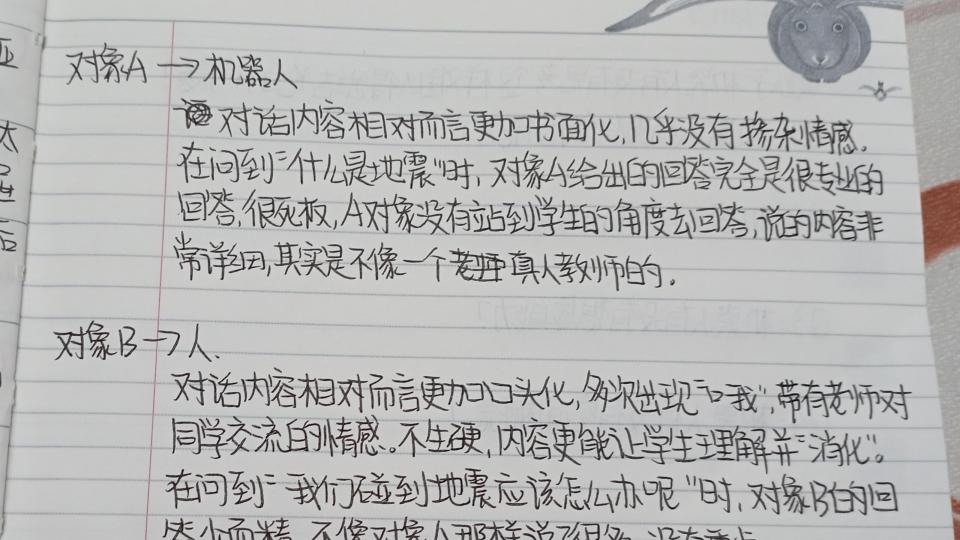 对象A → 机器人
对话内容相对而言更加书面化,几乎没有掺杂情感。
在问到“什么是地震”时,对象A给出的回答完全是很专业的
回答,很死板,A对象没有站到学生的角度去回答,说的内容非
常详细,其实是不像一个真人教师的。
对象B → 人.
对话内容相对而言更加口头化,多次出现“我”,带有老师对
同学交流的情感。不生硬,内容更能让学生理解并“消化”。
在问到“我们碰到地震应该怎么办呢”时,对象B的回
答少而精,不像对象A那样说了很多,没有重点